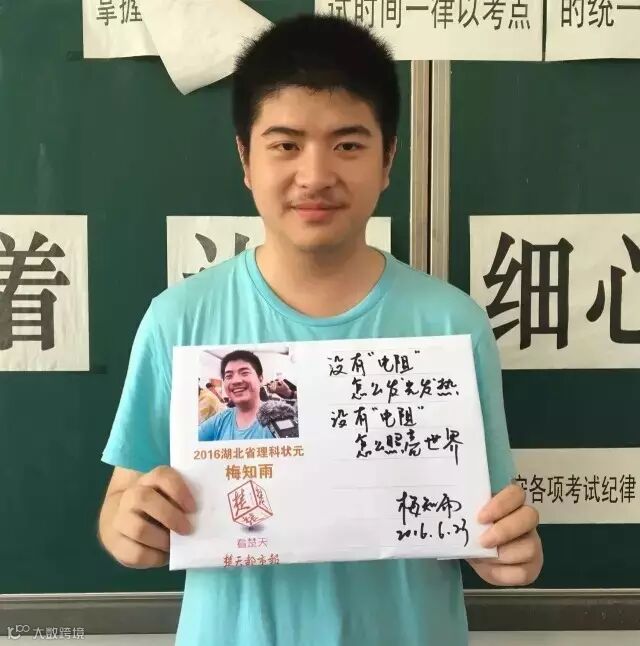 掌握
试时间一律以考点
的统一
着
细心
没有“电阻”
怎么发光发热,
没有“电阻”
怎么照亮世界
2016湖北省理科状元
梅知雨
看楚天
楚天都市报
梅知雨
2016.6.23
安各项考试纪律
大数跨境